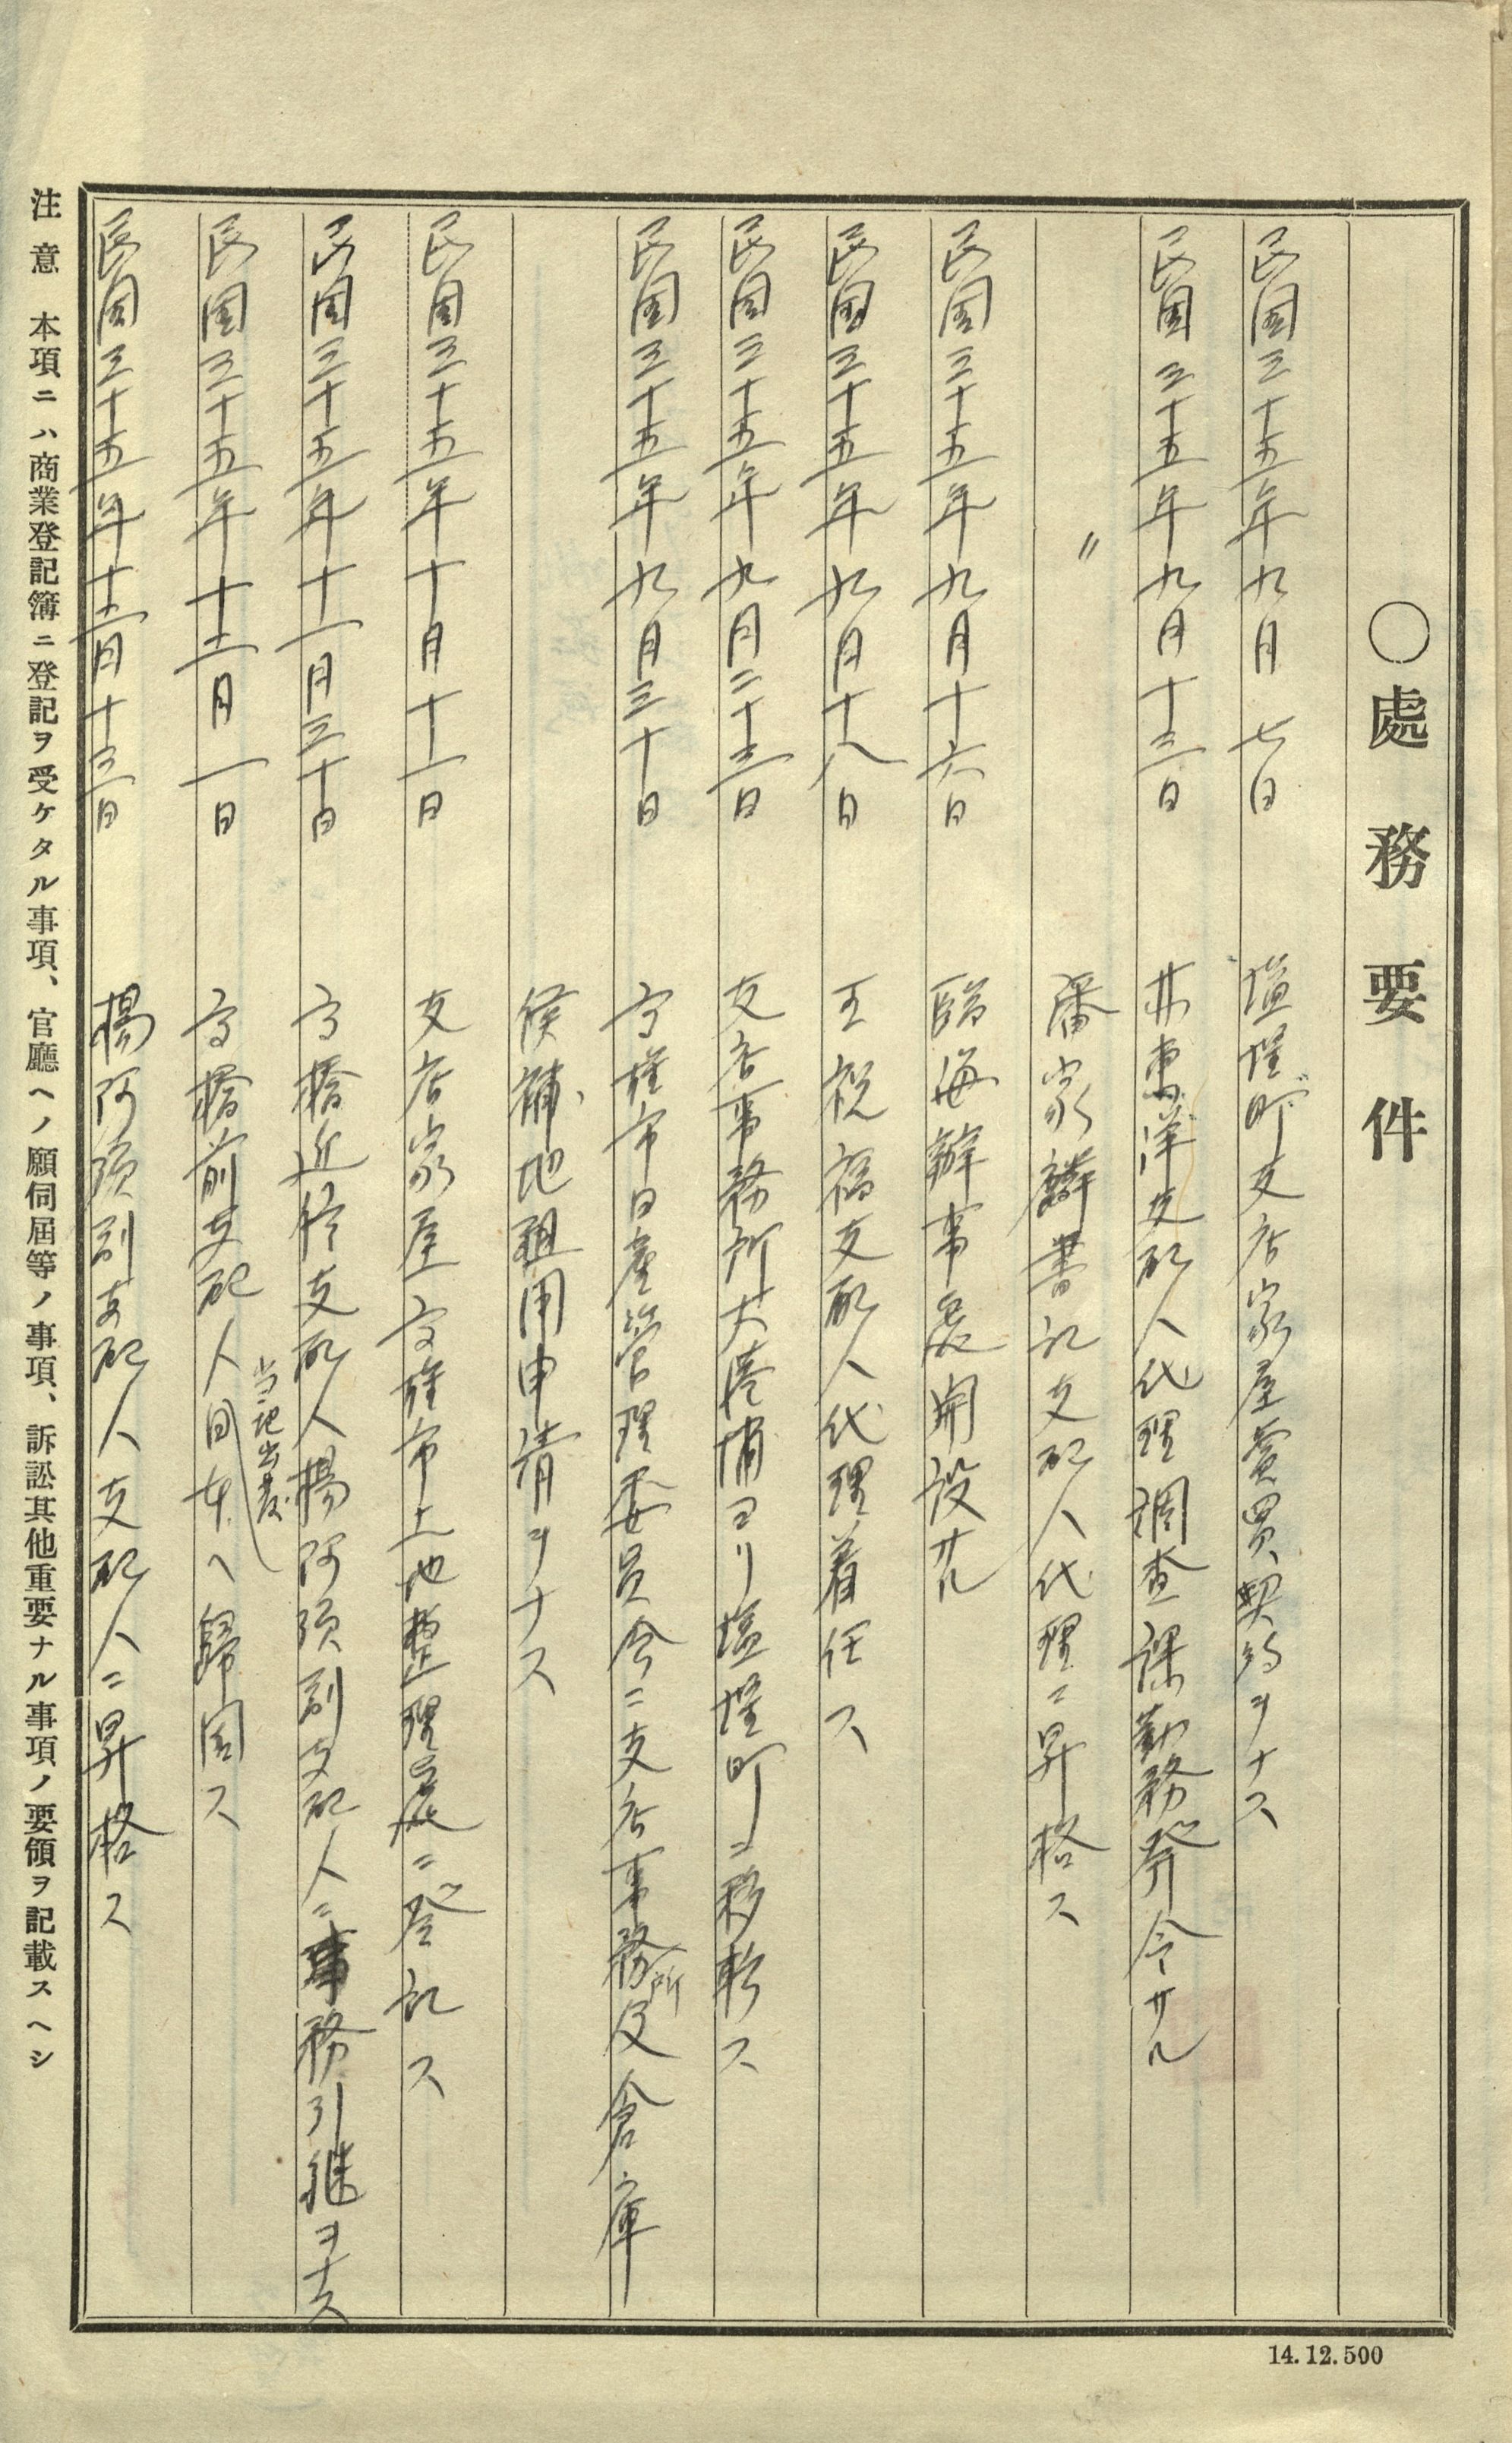 ○處務要件
民國三十五年九月七日 塩埕町支店家屋賣買契約ヲナス
民國三十五年九月十三日 林東洋支配人代理調査課勤務発令サル
〃 潘家麟書記支配人代理ニ昇格ス
民國三十五年九月十六日 臨海辦事處開設サル
民國三十五年九月十八日 王祝福支配人代理着任ス
民國三十五年九月二十三日 支店事務所大港埔ヨリ塩埕町ニ移転ス
民國三十五年九月三十日 高雄市日産管理委員会ニ支店事務所及倉庫
候補地租用申請ヲナス
民國三十五年十月十一日 支店家屋高雄市土地整理處ニ登記ス
民國三十五年十一月三十日 高橋近 支配人楊阿須副支配人ニ事務引継ヲナス
民國三十五年十二月一日 高橋前支配人当地出発日本ヘ歸国ス
民國三十五年十二月十三日 楊阿須副支配人支配人ニ昇格ス
注意 本項ニハ商業登記簿ニ登記ヲ受ケタル事項、官廳ヘノ願伺屆等ノ事項、訴訟其他重要ナル事項ノ要領ヲ記載スヘシ
14.12.500